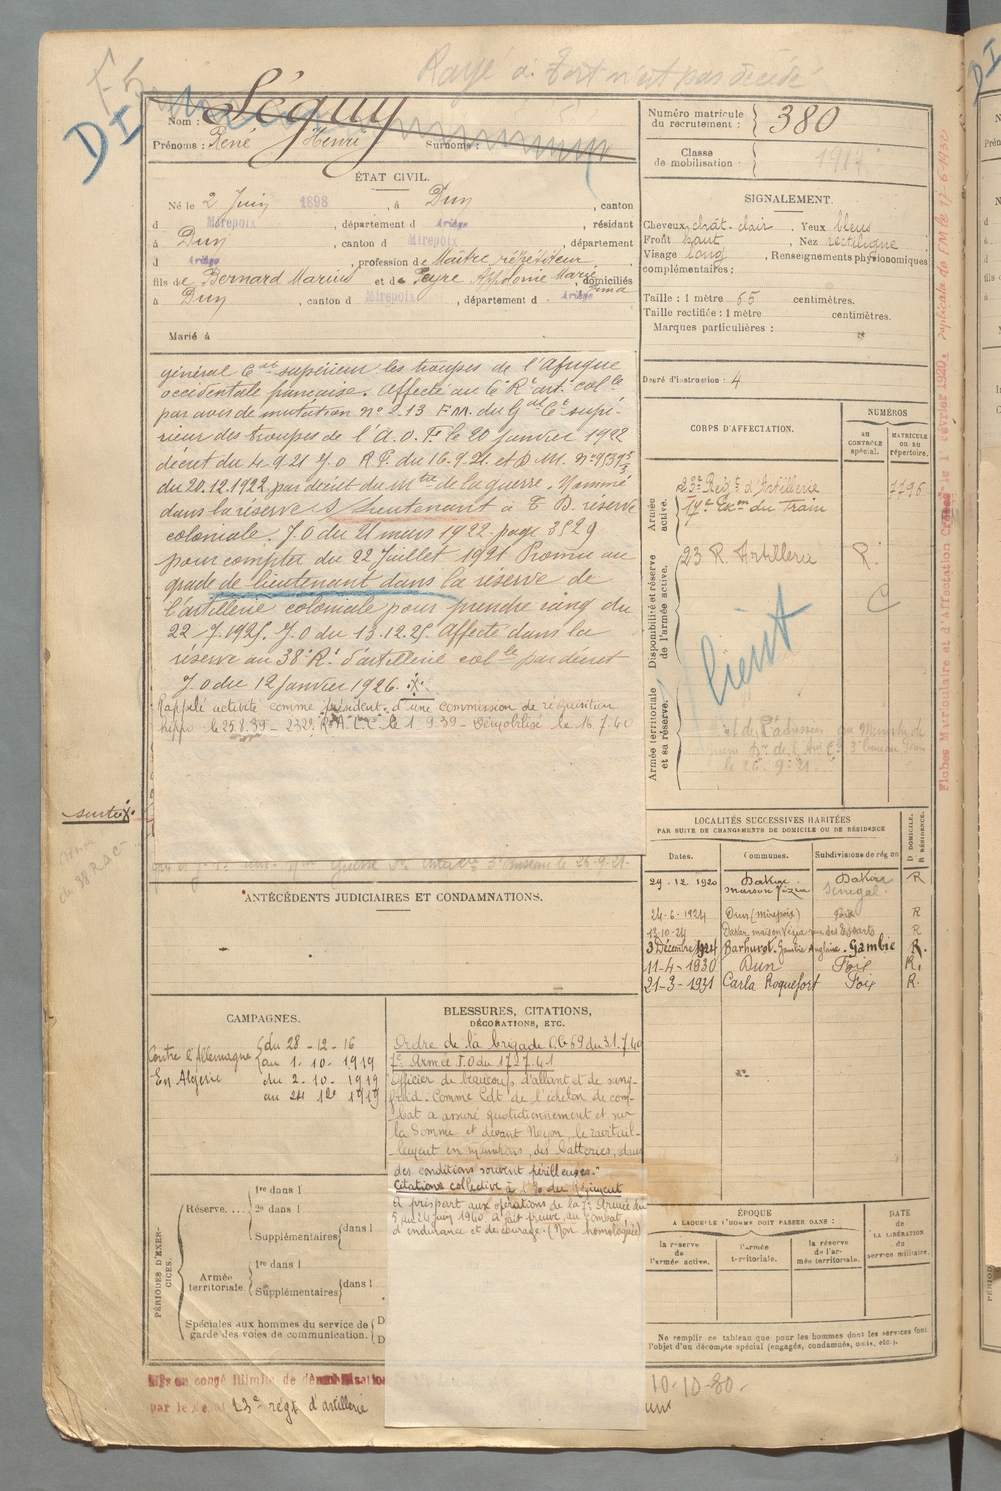 Rayé à tort n'est pas décédé
F5
DI
Nom : Séguy
Prénoms : René Henri Surnoms :
Numéro matricule
du recrutement : 380
Classe
de mobilisation : 1917
ÉTAT CIVIL.
Né le 2 Juin 1898 , à Dun , canton
d Mirepoix , département d Ariège , résidant
à Dun , canton d Mirepoix , département
d Ariège , profession de Maître répétiteur
fils de Bernard Marius et de Peyre Alphonie Marie , domiciliés
à Dun , canton d Mirepoix , département d Ariège
Marié à
SIGNALEMENT.
Cheveux chât-clair . Yeux bleus
Front haut , Nez rectiligne
Visage long , Renseignements physionomiques
complémentaires :
Taille : 1 mètre 65 centimètres.
Taille rectifiée : 1 mètre centimètres.
Marques particulières :
Degré d'instruction : 4
général Ct supérieur les troupes de l'Afrique
occidentale française. Affecté au 6e Rt art. colle
par avis de mutation n° 213 F.M. du Gal Ct supé-
rieur des troupes de l'A.O.F. le 20 janvier 1922
décret du 4-9-21 J.O R.F. du 16-9-21. et D.M. n°
du 20.12.1922 par décret du Mtre de la guerre. Nommé
dans la réserve S/Lieutenant à T.D. réserve
coloniale. J.O du 21 mars 1922. page 3529
pour compter du 22 Juillet 1921 Promu au
grade de lieutenant dans la réserve de
l'artillerie coloniale pour prendre rang du
22-7-1925. J.O du 13.12.25. Affecté dans la
réserve au 38e Rt d'artillerie colle par décret
J.O du 12 janvier 1926.
Rappelé activité comme président d'une commission de réquisition
hippo le 25.8.39 - 232e R.A. le 1.9.39 - Démobilisé le 16.7.40
suite
du 38 RAC
guerre 3e Bureau le 26-9-21.
CORPS D'AFFECTATION.
NUMÉROS
AU CONTRÔLE spécial.
MATRICULE ou au répertoire.
Armée active.
23e Regt d'Artillerie 7796
17e Escon du Train
Disponibilité et réserve de l'armée active.
23 R. Artillerie R.
C
lieut
Armée territoriale et sa réserve.
le 26-9-21.
Fiches Matriculaire et d'Affectation Créées le 1er Février 1920. Duplicata de FM le 17-6-1932
LOCALITÉS SUCCESSIVES HABITÉES
PAR SUITE DE CHANGEMENTS DE DOMICILE OU DE RÉSIDENCE
Dates. Communes. Subdivisions de région D DOMICILE. R RÉSIDENCE.
29-12 1920 Dakar maison Vézia Dakar Sénégal. R
24-6-1924 Dun (Mirepoix) Foix R
13-10-24 Dakar, maison Vézia rue des Essarts R
3 Décembre 1924 Barhurst. Gambie Anglaise. Gambie R.
11-4-1930 Dun Foix R.
21-3-1931 Carla Roquefort Foix R.
ANTÉCÉDENTS JUDICIAIRES ET CONDAMNATIONS.
CAMPAGNES.
Contre l'Allemagne du 28-12-16
au 1-10-1919
En Algérie du 2-10-1919
au 24 12e 1919
BLESSURES, CITATIONS,
DÉCORATIONS, ETC.
Ordre de la brigade n° 69 du 31.7.40
7e Armée J.O du 17.7.41
"Officier de beaucoup d'allant et de sang-
froid. Comme Cdt de l'échelon de com-
bat a assuré quotidiennement et sur
la Somme et devant Noyon, le ravitail-
lement en munitions, des batteries, dans
des conditions souvent périlleuses."
Citation collective à l'Jo du Régiment
A pris part aux opérations de la 7e Armée du
5 au 24 juin 1940 a fait preuve, au combat
d'endurance et de courage. (Non homologuée)
PÉRIODES D'EXERCICES.
Réserve....
1re dans l
2e dans l
Supplémentaires dans l
Armée territoriale
1re dans l
Supplémentaires dans l
Spéciales aux hommes du service de
garde des voies de communication.
D
D
ÉPOQUE
A LAQUELLE L'HOMME DOIT PASSER DANS :
la réserve de l'armée active.
l'armée territoriale.
la réserve de l'armée territoriale.
DATE de LA LIBÉRATION du service militaire.
Ne remplir ce tableau que pour les hommes dont les services font
l'objet d'un décompte spécial (engagés, condamnés, omis, etc.).
Mis en congé illimité de démobilisation
par le dépôt 23e régt d'artillerie
10-10-20.